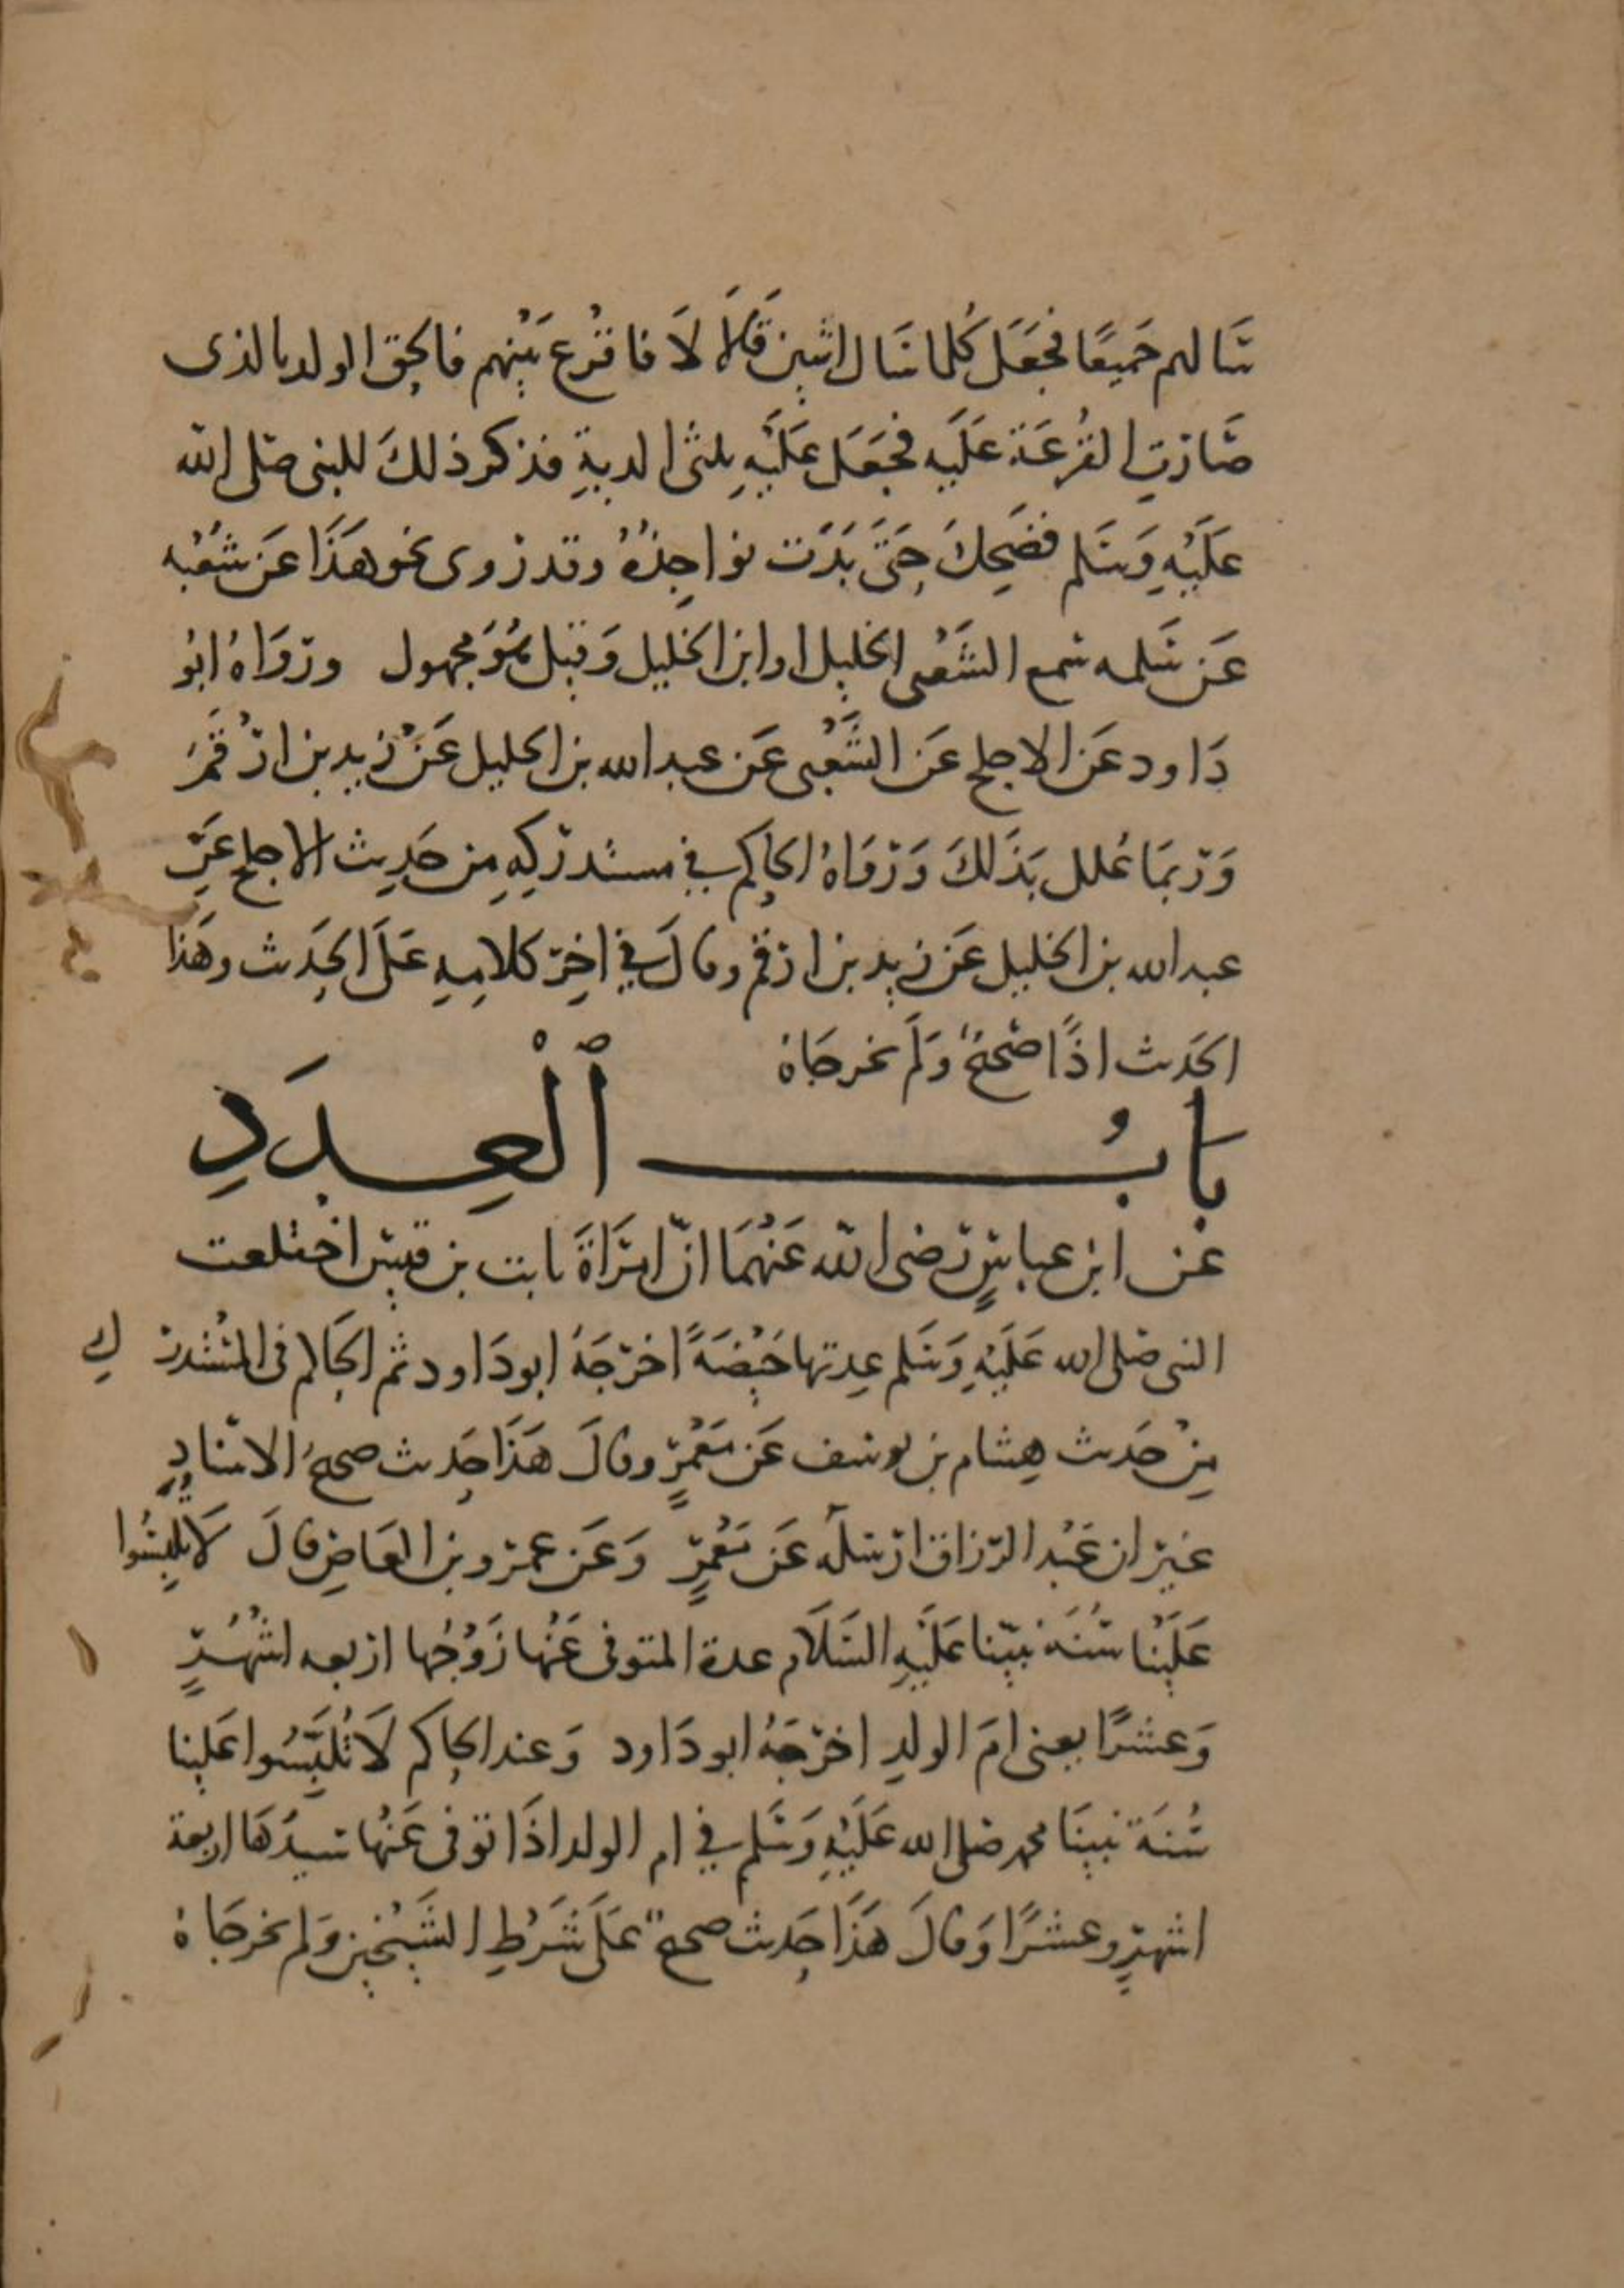 سالهم جَميعًا فجَعَل كُلما سَال اثنين قَالَا لَا فاقرع بَيْنهم فالحق الولد بالذى
صَارَتِ القُرعَة عَلَيه فجَعَل عَلَيْهِ ثلثى الديةِ فذكر ذلكَ للنبى صَلى الله
عَلَيْهِ وَسَلم فضَحِكَ حَتَّى بَدَت نواجِذُهُ وقد رُوى نحو هَذَا عَن شعْبه
عَن سَلمه سمع الشَعْبى الخليل او ابن الخليل وَقيل هُوَ مجهول ورَوَاهُ ابُو
دَاود عَن الاجلح عَن الشَّعْبى عَن عبد الله بن الخليل عَنْ زيد بن ارْقَمَ
وَرُبمَا عُلل بذَلكَ وَرَوَاهُ الحَاكم في مستدرَكِهِ مِن حَدِيث الاجلح عَن
عبد الله بن الخليل عَن زيد بن ارقم وقالَ في اخِر كلامِهِ عَلَى الحَدِيث وهَذا
الحَديث اذًا صَحيحٌ وَلَم يخرجَاهُ
بَابُ الْعِدَدِ
عَن ابن عباسٍ رَضى الله عَنْهُمَا انّ امرَاةَ ثابت بن قيسٍ اختلعت
النبى صَلى الله عَلَيْهِ وَسَلم عِدتها حَيْضَةً اخرَجَهُ ابو دَاود ثم الحَاكم فى المسْتدرك
مِنْ حَديث هِشام بن يوسف عَن مَعْمَرٍ وقالَ هَذَا حَدِيث صحيحُ الاسنادِ
غيرَ ان عَبْد الرزاق ارْسَله عَن مَعْمَرٍ وَعَن عمرو بن العَاصِ قالَ لَا تُلبِسُوا
عَلَيْنا سُنَةَ نبيّنا عَلَيْهِ السَلَام عدة المتوفى عَنْها زَوْجُها اربعه اشْهُرٍ
وَعشرًا يعنى امَ الولدِ اخرَجَهُ ابو دَاود وَعند الحَاكم لَا تُلَبِّسُوا عَلينا
سُنَةَ نبينَا محمد صَلى الله عَلَيْهِ وَسَلم في ام الولد اذَا توفى عَنْها سَيدُهَا اربعة
اشهرٍ وعشرًا وَقالَ هَذَا حَدِيث صحيحٌ عَلَى شَرْطِ الشَيْخين وَلم يخرجَاهُ